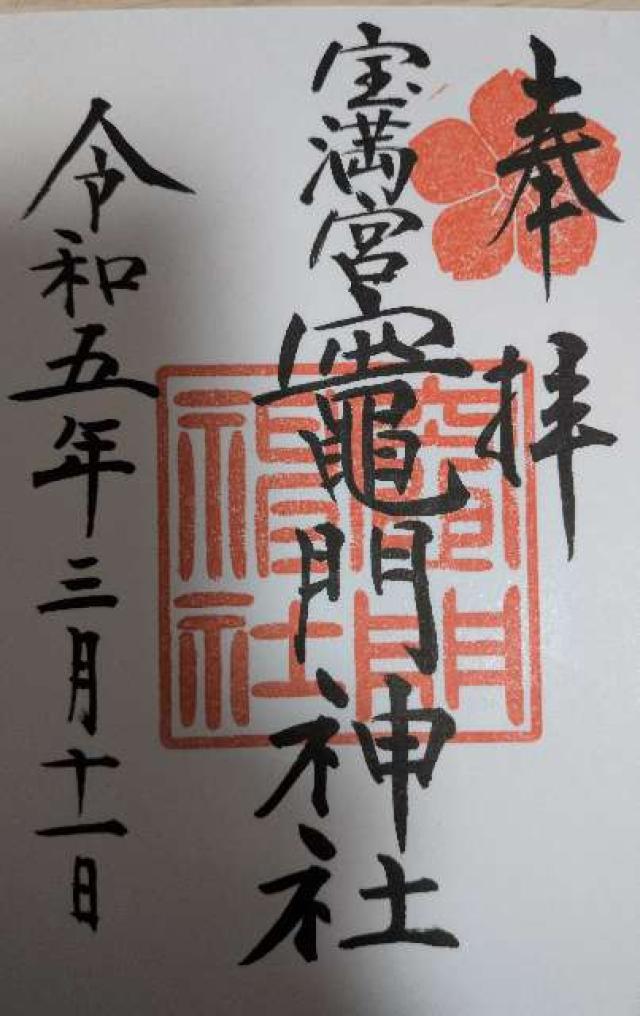 奉拝
宝満宮竈門神社
竈門神社
令和五年三月十一日